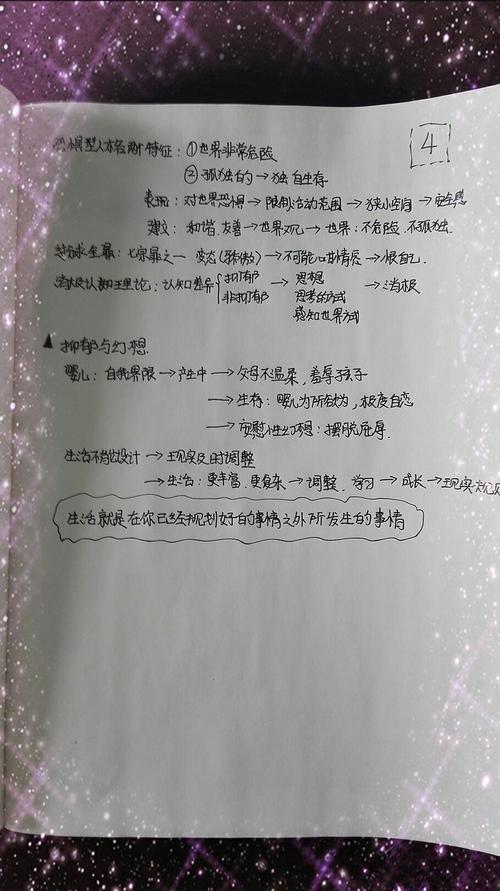 4
恐惧型人格两个特征：①世界非常危险
②孤独的→独自生存
表现：对世界恐惧→限制活动范围→狭小空间→安全感
建立：和谐.友善→世界观→世界：不危险.不孤独.
追求全赢：七宗罪之一 变态（弥散）→不可能→情层→恨自己.
消极认知理论：认知差异{抑郁 非抑郁→思想 思考的方式 感知世界方式→消极
▲抑郁与幻想.
婴儿：自我界限→产生中→父母不温柔，羞辱孩子
→生存：婴儿为所欲为，极度自恋
→安慰性幻想：摆脱屈辱.
生活不能设计→现实及时调整
→生活：更丰富.更复杂→调整.学习→成长→现实
生活就是在你已经规划好的事情之外所发生的事情